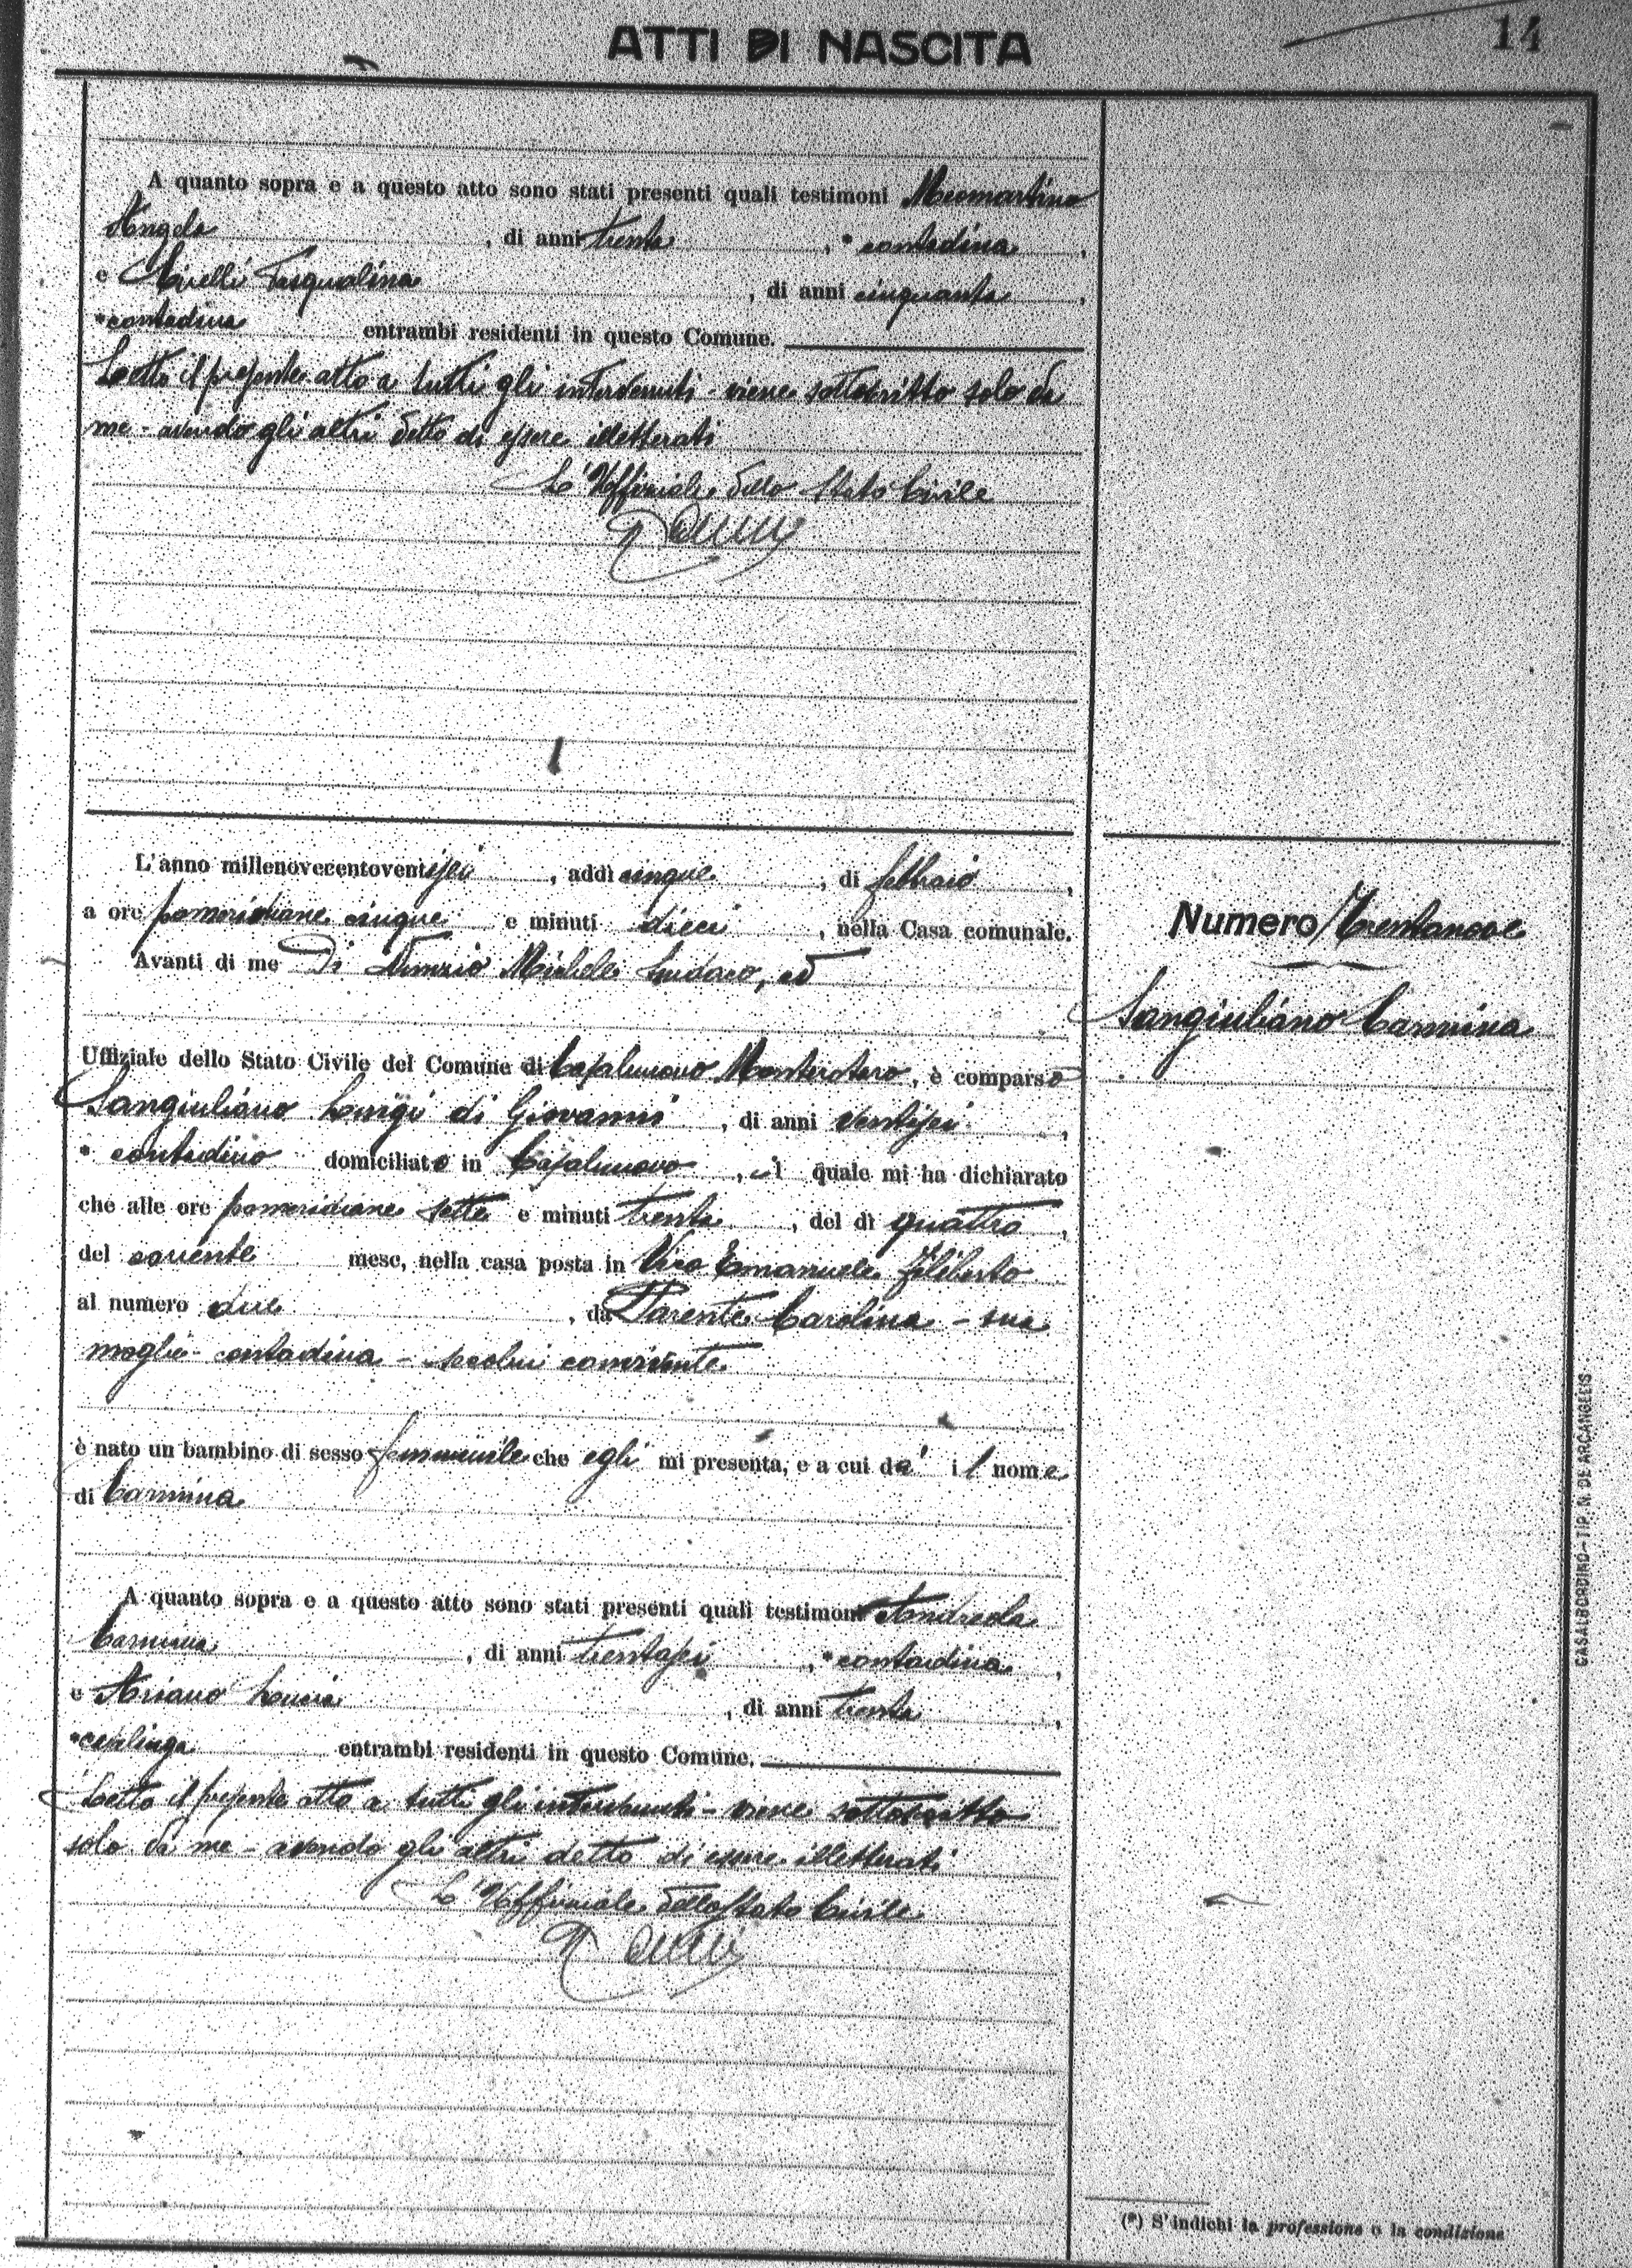 ATTI DI NASCITA
14
A quanto sopra e a questo atto sono stati presenti quali testimoni
Angela, di anni trenta, * contadina,
e Pasqualina, di anni cinquanta,
*contadina entrambi residenti in questo Comune.
Letto il presente atto a tutti gli intervenuti - viene sottoscritto solo da
me - avendo gli altri detto di essere illetterati
L'Uffiziale dello Stato Civile
L'anno millenovecentoventisei, addì cinque, di febbraio,
a ore pomeridiane cinque e minuti dieci, nella Casa comunale.
Avanti di me Di Nunzio Michele Sindaco, ed
Uffiziale dello Stato Civile del Comune di Casalnuovo Monterotaro, è comparso
Sangiuliano Luigi di Giovanni, di anni ventisei,
* contadino domiciliato in Casalnuovo, il quale mi ha dichiarato
che alle ore pomeridiane sette e minuti trenta, del dì quattro,
del corrente mese, nella casa posta in Vico Emanuele Filiberto
al numero due, da Parente Carolina - sua
moglie - contadina - seco lui convivente
è nato un bambino di sesso femminile che egli mi presenta, e a cui dà il nome
di Carmina
A quanto sopra e a questo atto sono stati presenti quali testimoni Andreola
Carmina, di anni trentasei, *contadina,
e Ariano Lucia, di anni trenta,
*casalinga entrambi residenti in questo Comune.
Letto il presente atto a tutti gli intervenuti - viene sottoscritto
solo da me - avendo gli altri detto di essere illetterati
L'Uffiziale dello Stato Civile
Numero Trentanove
Sangiuliano Carmina
CASALBORDINO - TIP. N. DE ARCANGELIS
(*) S'indichi la professione o la condizione